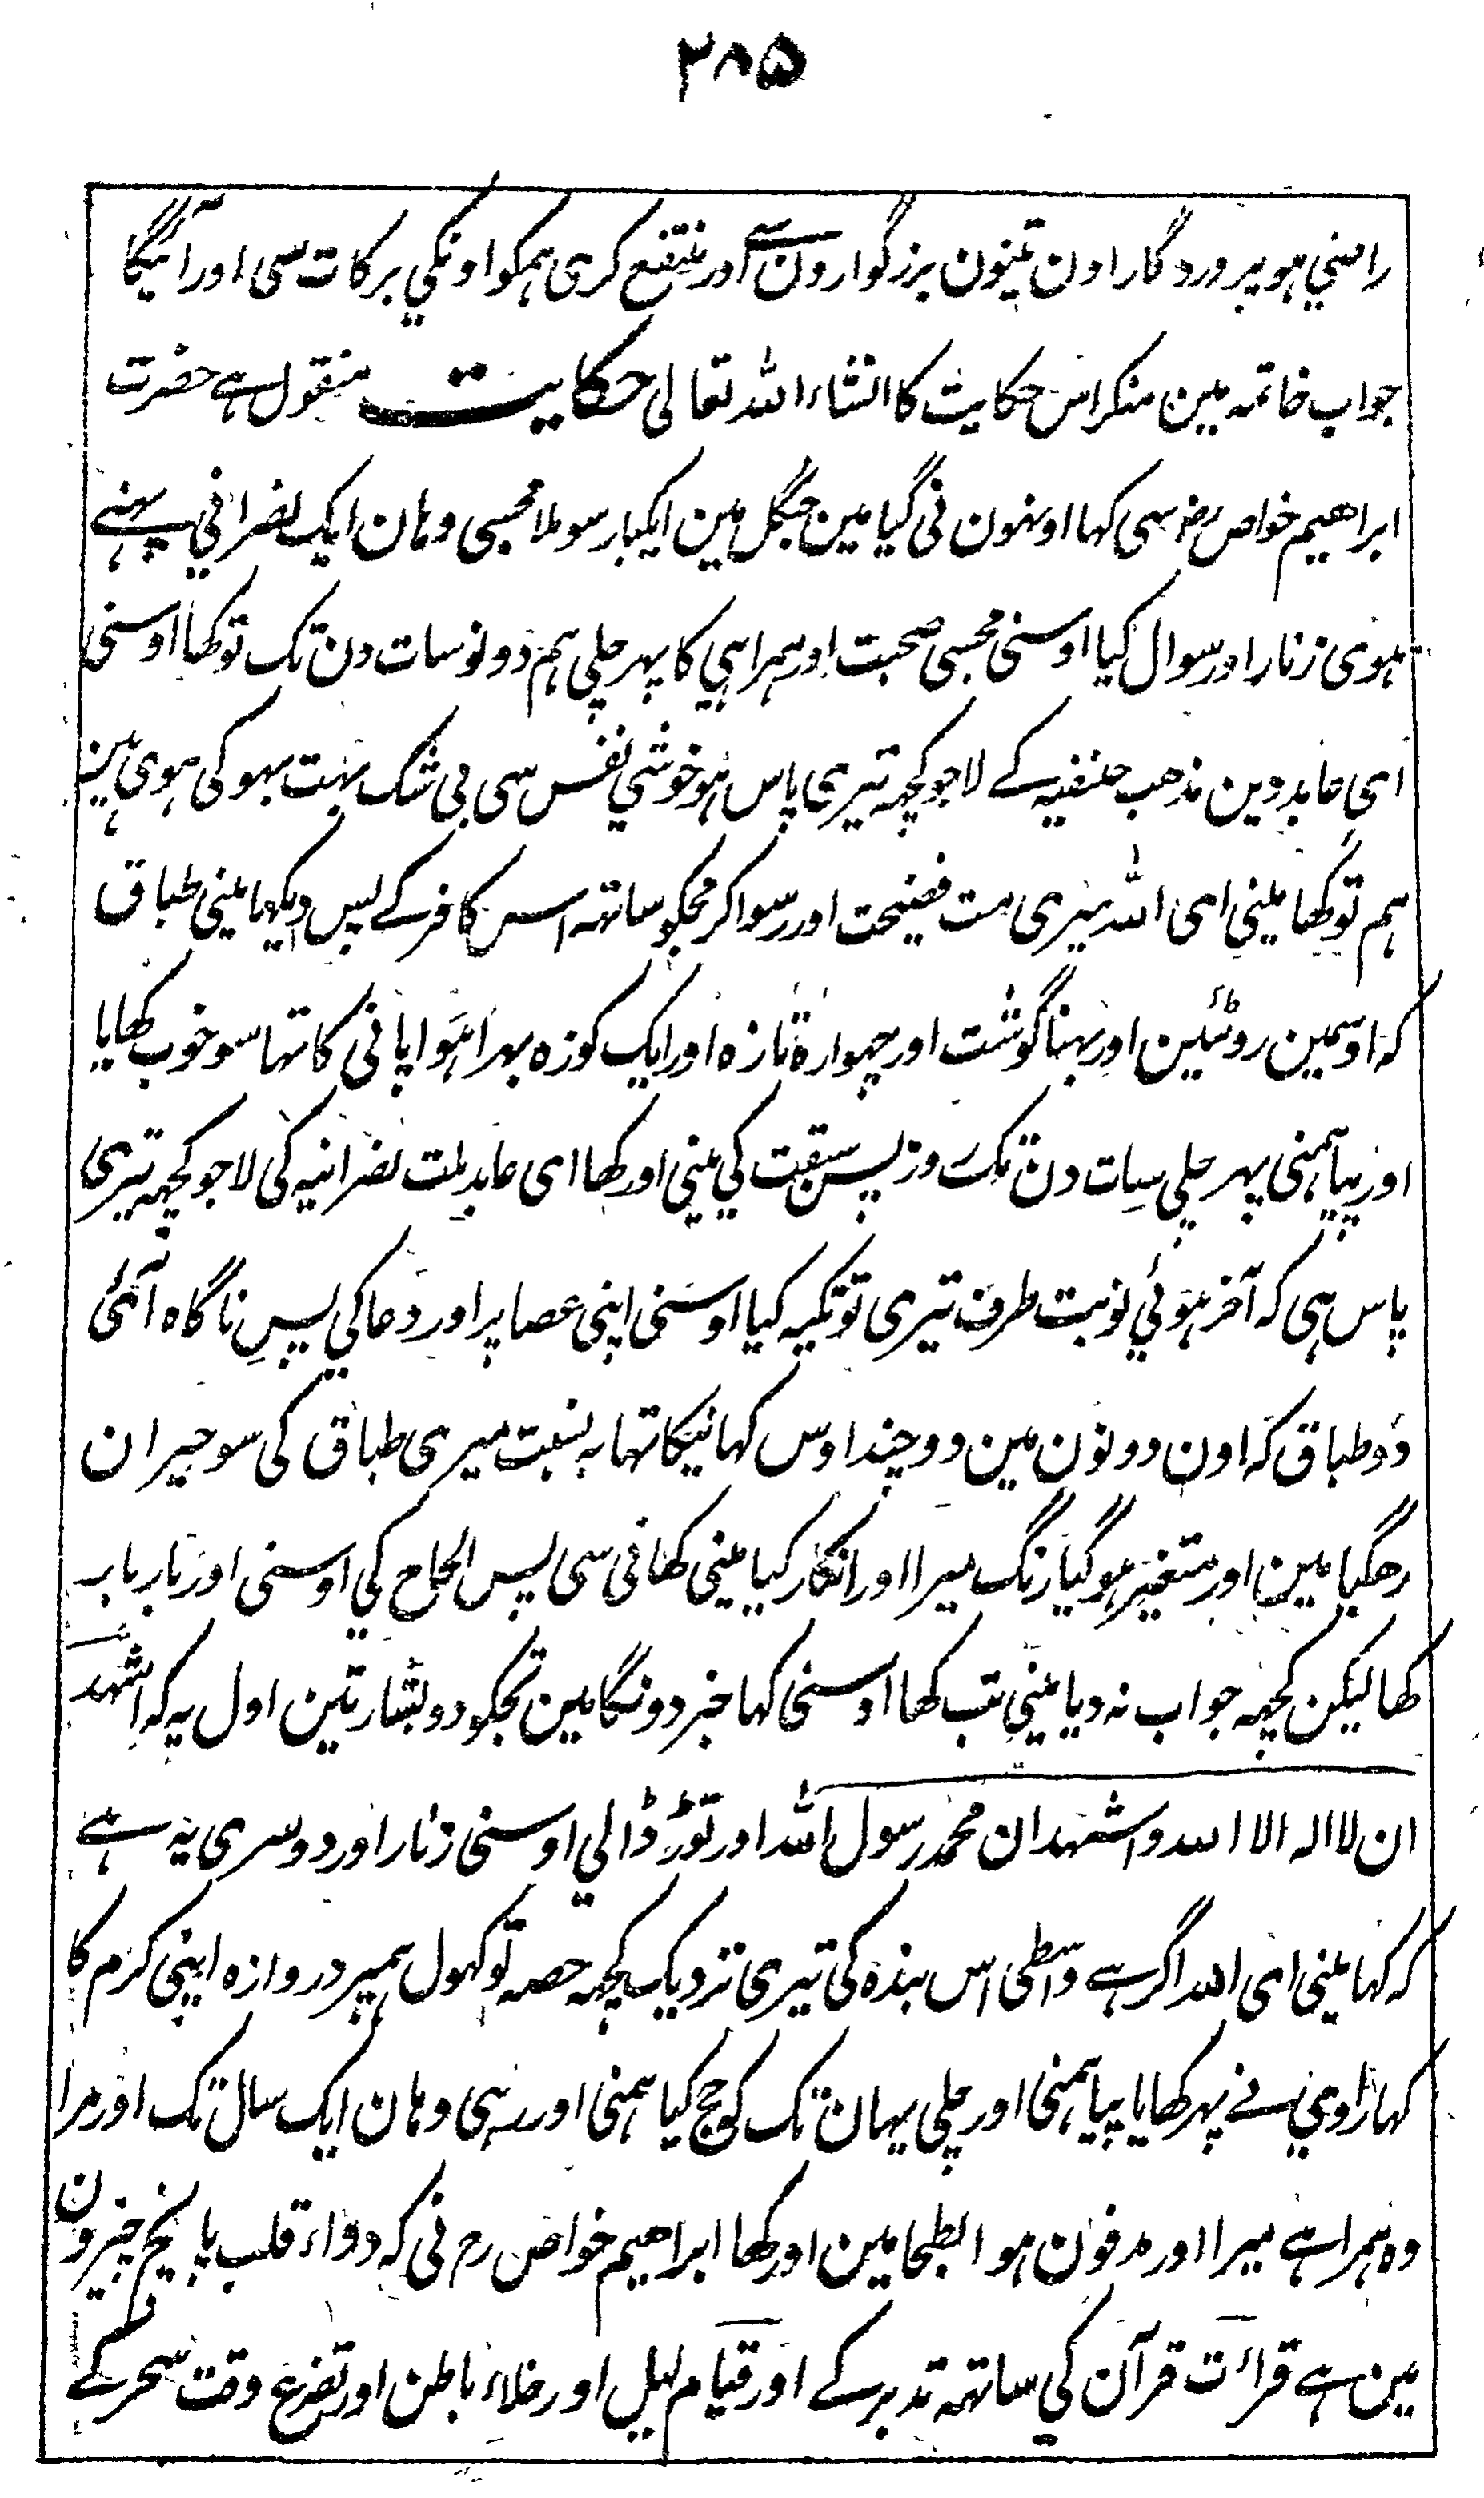 ۲۸۵
راضي هو پروردگار اون تینون بزرگوارون سے اور منتفع کری همکو اونکي برکات سی اور آئیگا
جواب خاتمہ مین منکر اس حکایت کا انشاء الله تعالی حکایت منقول ہے حضرت
ابراهیم خواص رض سی کہا اونہون نی گیا مین جنگل مین ایکبار سو ملا مجسی وہان ایک نصرانی پہنے
ہوی زنار اور سوال کیا اوسنی مجسی صحبت اور ہمراہی کا پہر چلي ہم دونو سات دن تک تو کھا اوسنی
ای عابد دین مذهب حنفیہ کے لا جو کچہ تیری پاس ہو خوشي نفس سی بی شک بہت بہوکی ہوی ہین
ہم تو کھا مینی ای الله میری مت فضیحت اور رسوا کر مجکو ساتہہ اس کافر کے پس دیکہا مینی طباق
کہ اوسمین روٹئین اور بہنا گوشت اور چہوارۂ تازہ اور ایک کوزہ بہرا ہوا پانی کا تہا سو خوب کھایا
اور پیا ہمنی پہر چلي سات دن تک روز پس سبقت کي مینی اور کھا ای عابد ملت نصرانیہ کی لا جو کچہہ تیری
پاس ہی کہ آخر ہوئي نوبت طرف تیری تو تکیہ کیا اوسنی اپنی عصا پر اور دعا کي پس ناگاہ آئی
دو طباق کہ اون دونون مین دو چند اوس کہانیکا تہا بہ نسبت میری طباق کی سو حیران
رهگیا مین اور متغیر ہوگیا رنگ میرا اور انکار کیا مینی کھانی سی پس الحاح کي اوسنی اور بار بار
کھا لیکن کچہہ جواب نہ دیا مینی تب کھا اوسنی کہا خبر دونگا مین تجکو دو بشارتین اول یہ کہ اشهد
ان لا اله الا الله و اشهد ان محمد رسول الله اور توڑ ڈالي اوسنی زنار اور دوسری یہ ہے
کہ کہا مینی ای الله اگر ہے واسطی اس بندہ کی تیری نزدیک کچہہ حصہ تو کہول ہمپر دروازہ اپنی کرم کا
کہا راوي نے پہر کھایا پیا ہمنی اور چلي یہان تک کہ حج کیا ہمنی اور رہی وہان ایک سال تک اور مرا
وہ ہمراہی میرا اور مدفون ہوا بطحا مین اور کھا ابراهیم خواص رح نی کہ دواء قلب پانچ چیزون
مین ہے قراءت قرآن کي ساتہہ تدبر کے اور قیام لیل اور خلاء باطن اور تضرع وقت سحر کے